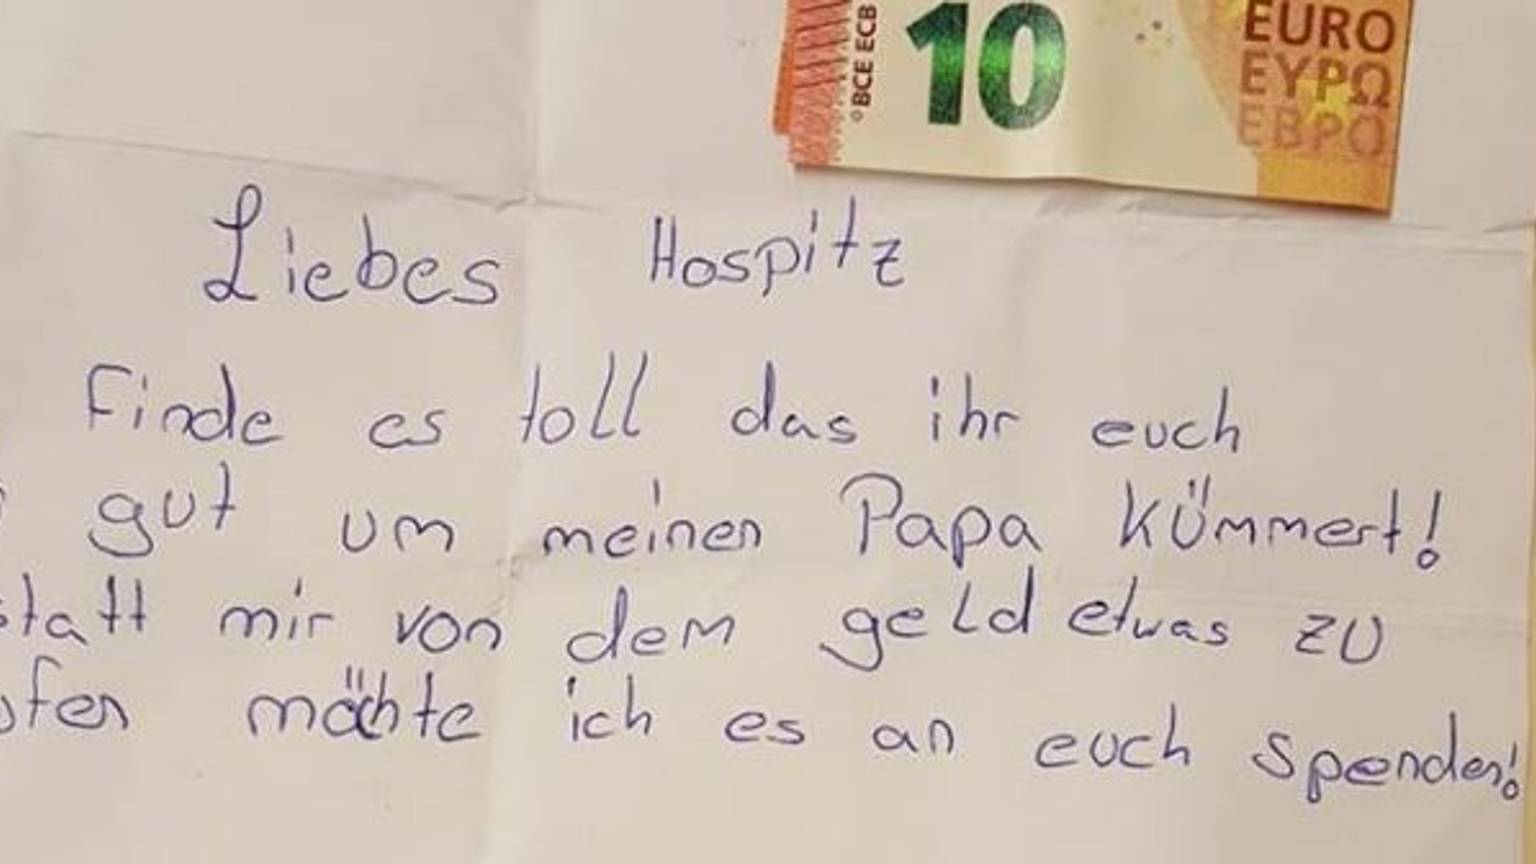 BCE ECB
10
EURO
ΕΥΡΩ
ЕВРО
Liebes Hospitz
Finde es toll das ihr euch
gut um meinen Papa kümmert!
statt mir von dem geld etwas zu
möchte ich es an euch spenden!